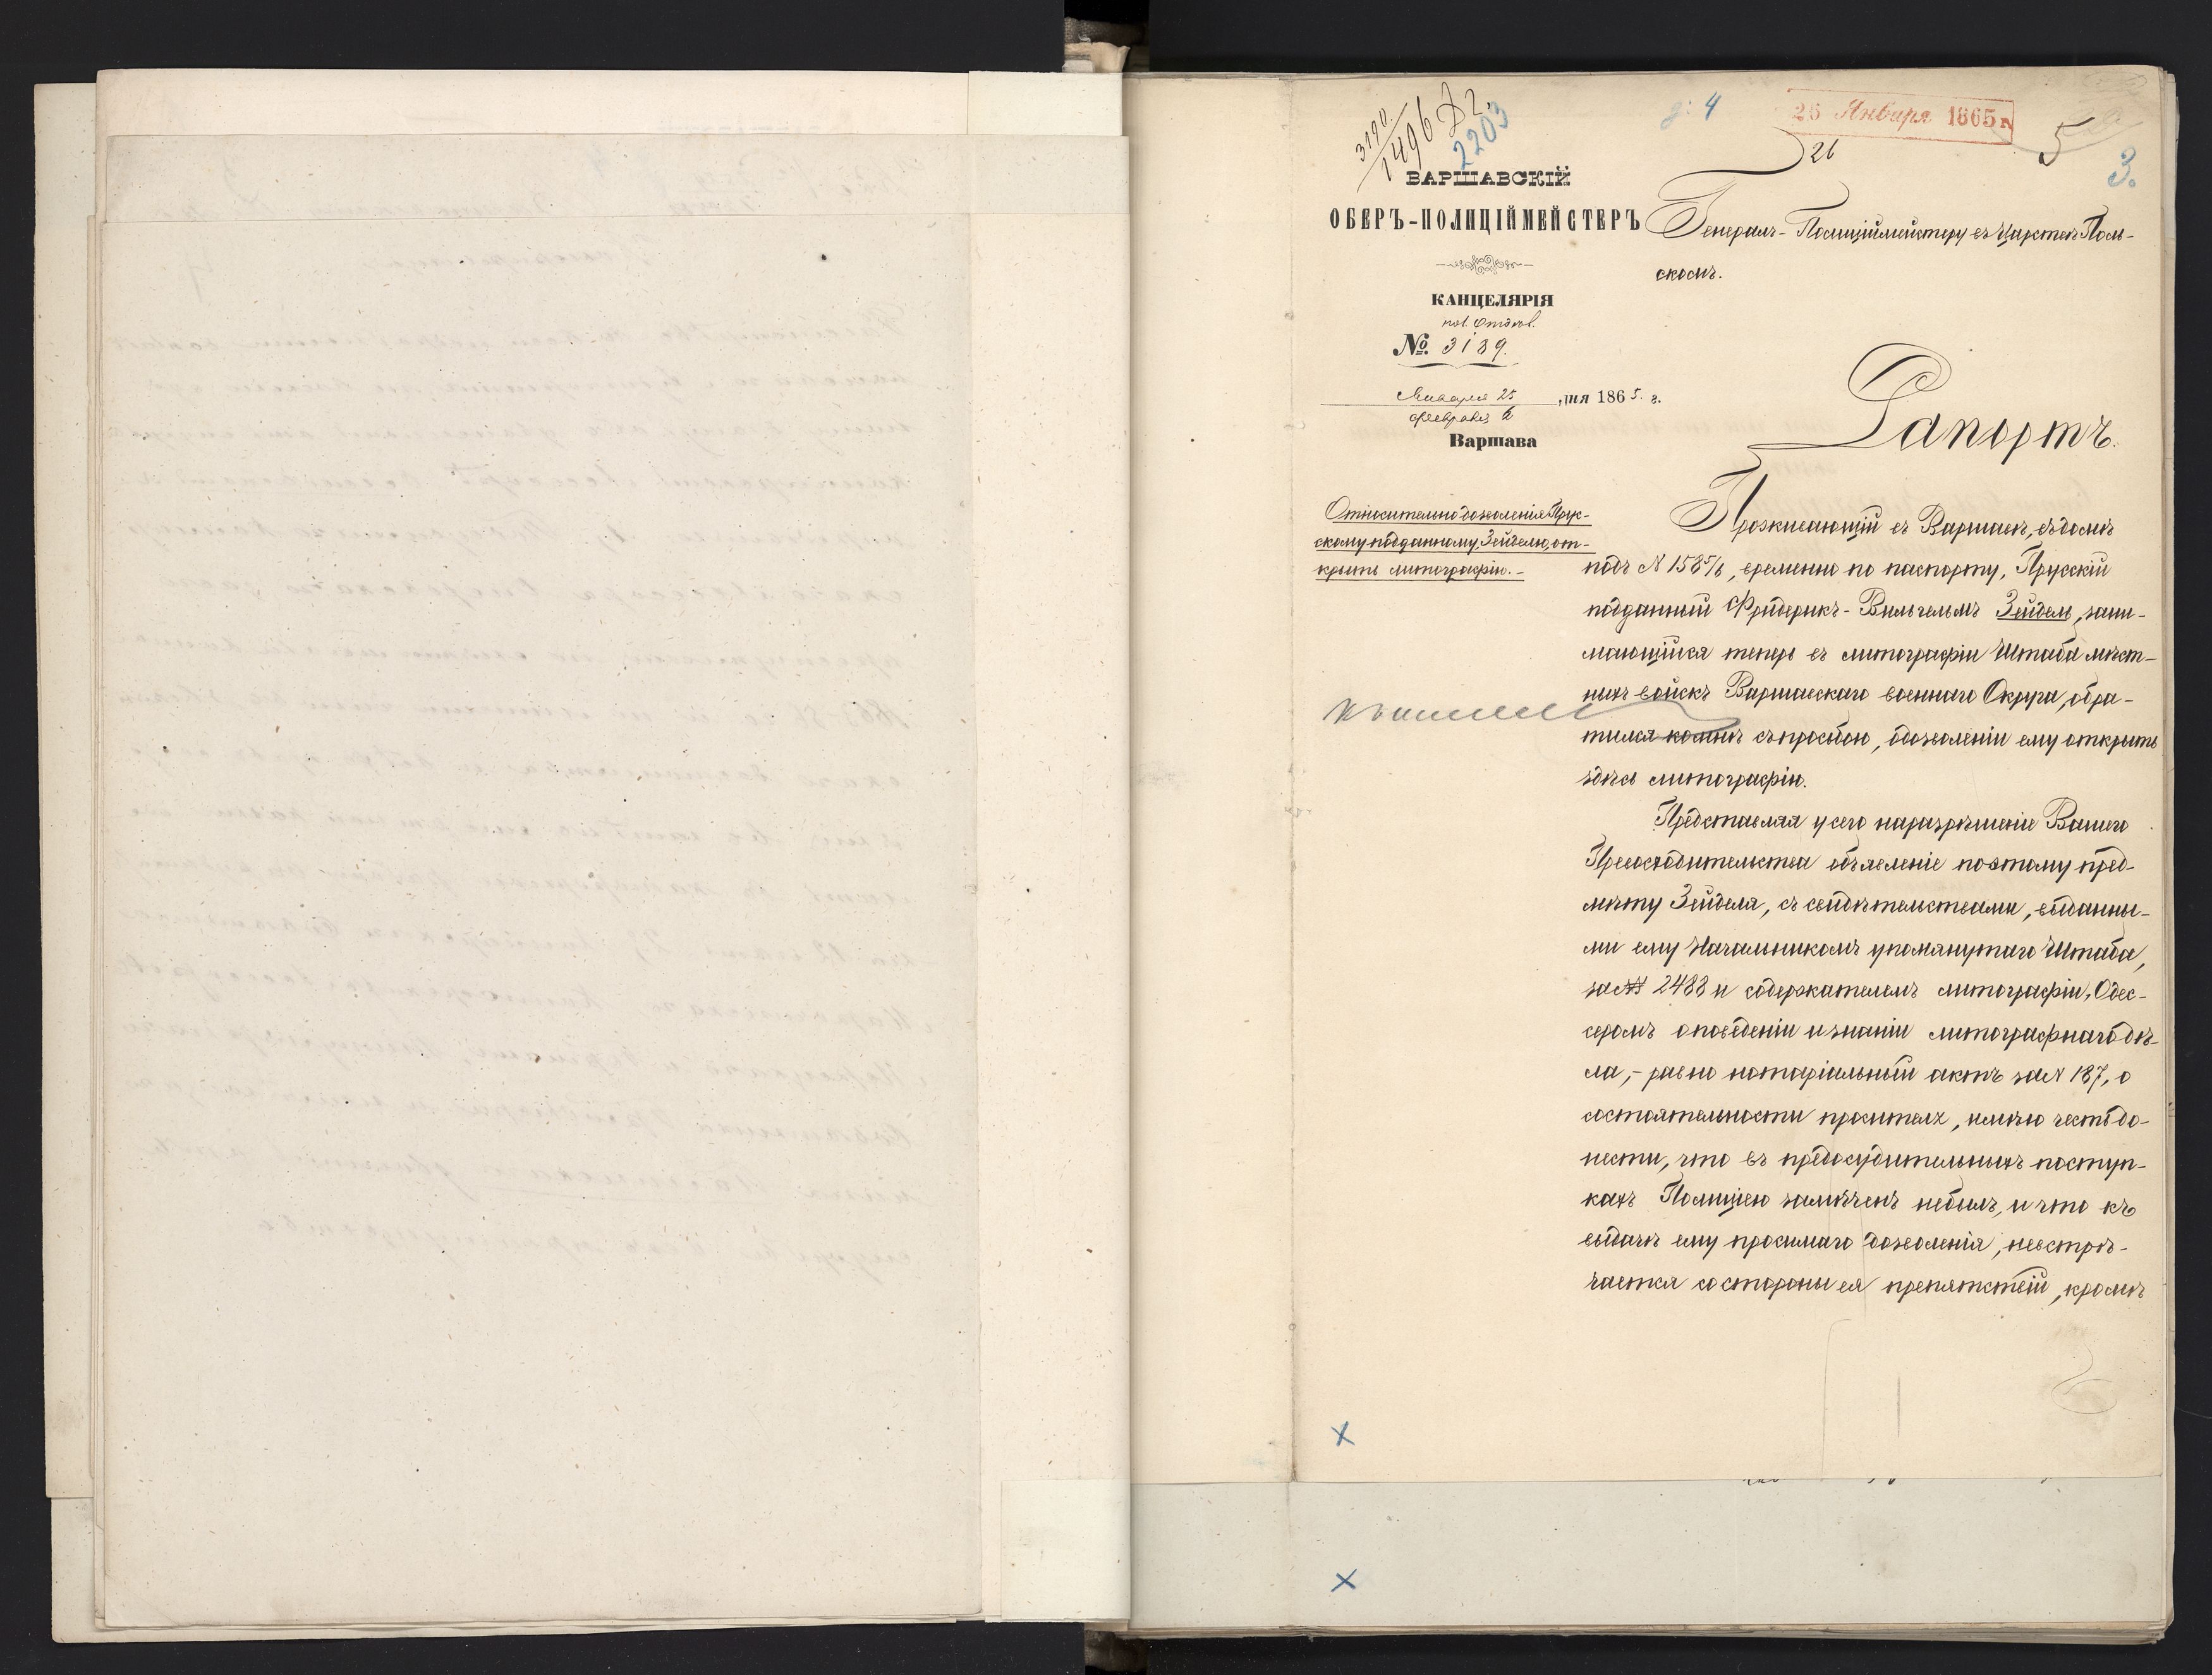 3190.
1496 Д2.
2203
д: 4
26 Января 1865 г
26
5
3.
ВАРШАВСКІЙ
ОБЕРЪ-ПОЛИЦІЙМЕЙСТЕРЪ
КАНЦЕЛЯРІЯ
№. 3189.
Января 25
Февраля 6
дня 1865. г.
Варшава
Относительно дозволенія Прус-
скому подданному, Зейделю, от-
крыть литографію.-
Генералъ-Полиціймейстеру въ Царствѣ Поль-
скомъ.
Рапортъ.
Проживающій въ Варшавѣ, въ домѣ
подъ № 1585/6, временно по паспорту, Прусскій
подданный Фридерикъ-Вильгельмъ Зейдель, зани-
мающійся теперь въ литографіи Штаба мѣст-
ныхъ войскъ Варшавскаго военнаго Округа, обра-
тился ко мнѣ съ просьбою, о дозволеніи ему открыть
здѣсь литографію.
Представляя у сего на разрѣшеніе Вашего
Превосходительства объявленіе по этому пред-
мѣту Зейделя, съ свидѣтельствами, выданны-
ми ему Начальникомъ упомянутаго Штаба,
за № 2488 и содержателемъ литографіи, Одес-
серомъ о поведеніи и знаніи литографнаго дѣ-
ла,- равно нотаріальный актъ за № 187, о
состоятельности просителя, имѣю честь до-
нести, что въ предосудительныхъ поступ-
кахъ Полиціею замѣченъ не былъ, и что къ
выдачѣ ему просимаго дозволенія, не встрѣ-
чается со стороны ея препятствій, кромѣ